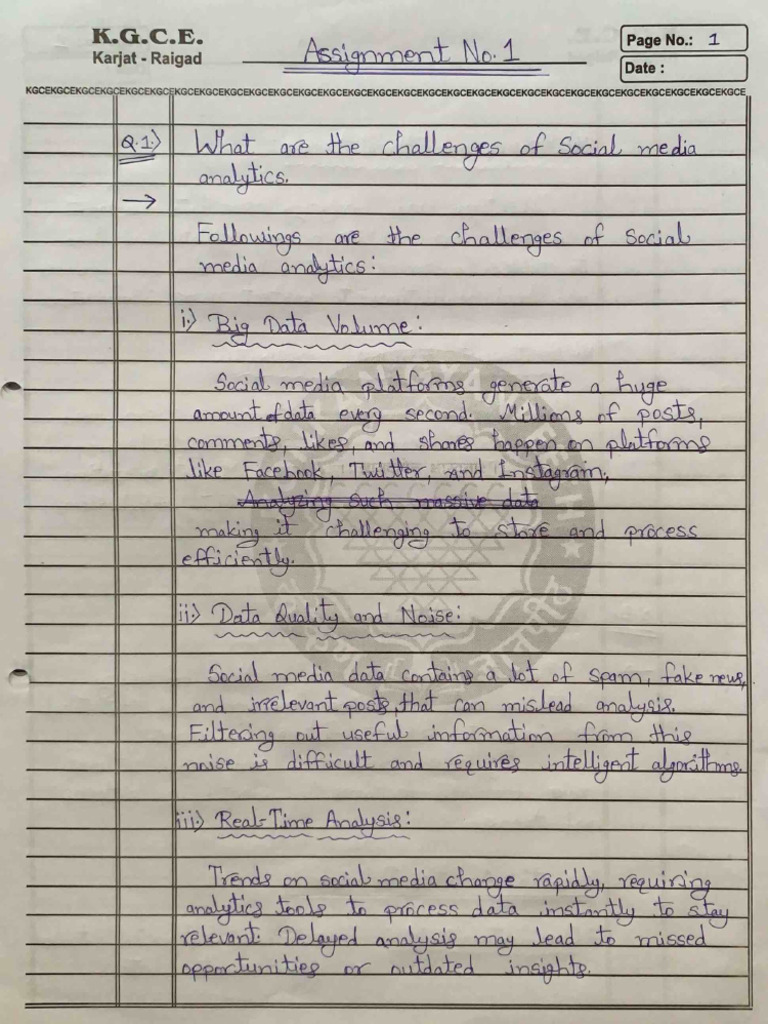 K.G.C.E.
Karjat - Raigad
Assignment No. 1
Page No.: 1
Date :
KGCEKGCEKGCEKGCEKGCEKGCEKGCEKGCEKGCEKGCEKGCEKGCEKGCEKGCEKGCEKGCEKGCEKGCEKGCEKGCEKGCEKGCEKGCEKGCEKGCEKGCEKGCEKGCEKGCE
Q.1.) What are the challenges of Social media
analytics.
→
Followings are the challenges of Social
media analytics:
i.) Big Data Volume:
Social media platforms generate a huge
amount of data every second. Millions of posts,
comments, likes, and shares happen on platforms
like Facebook, Twitter, and Instagram,
Analyzing such massive data
making it challenging to store and process
efficiently.
ii.) Data Quality and Noise:
Social media data contains a lot of spam, fake news,
and irrelevant posts, that can mislead analysis.
Filtering out useful information from this
noise is difficult and requires intelligent algorithms.
iii.) Real-Time Analysis:
Trends on social media change rapidly, requiring
analytics tools to process data instantly to stay
relevant. Delayed analysis may lead to missed
opportunities or outdated insights.